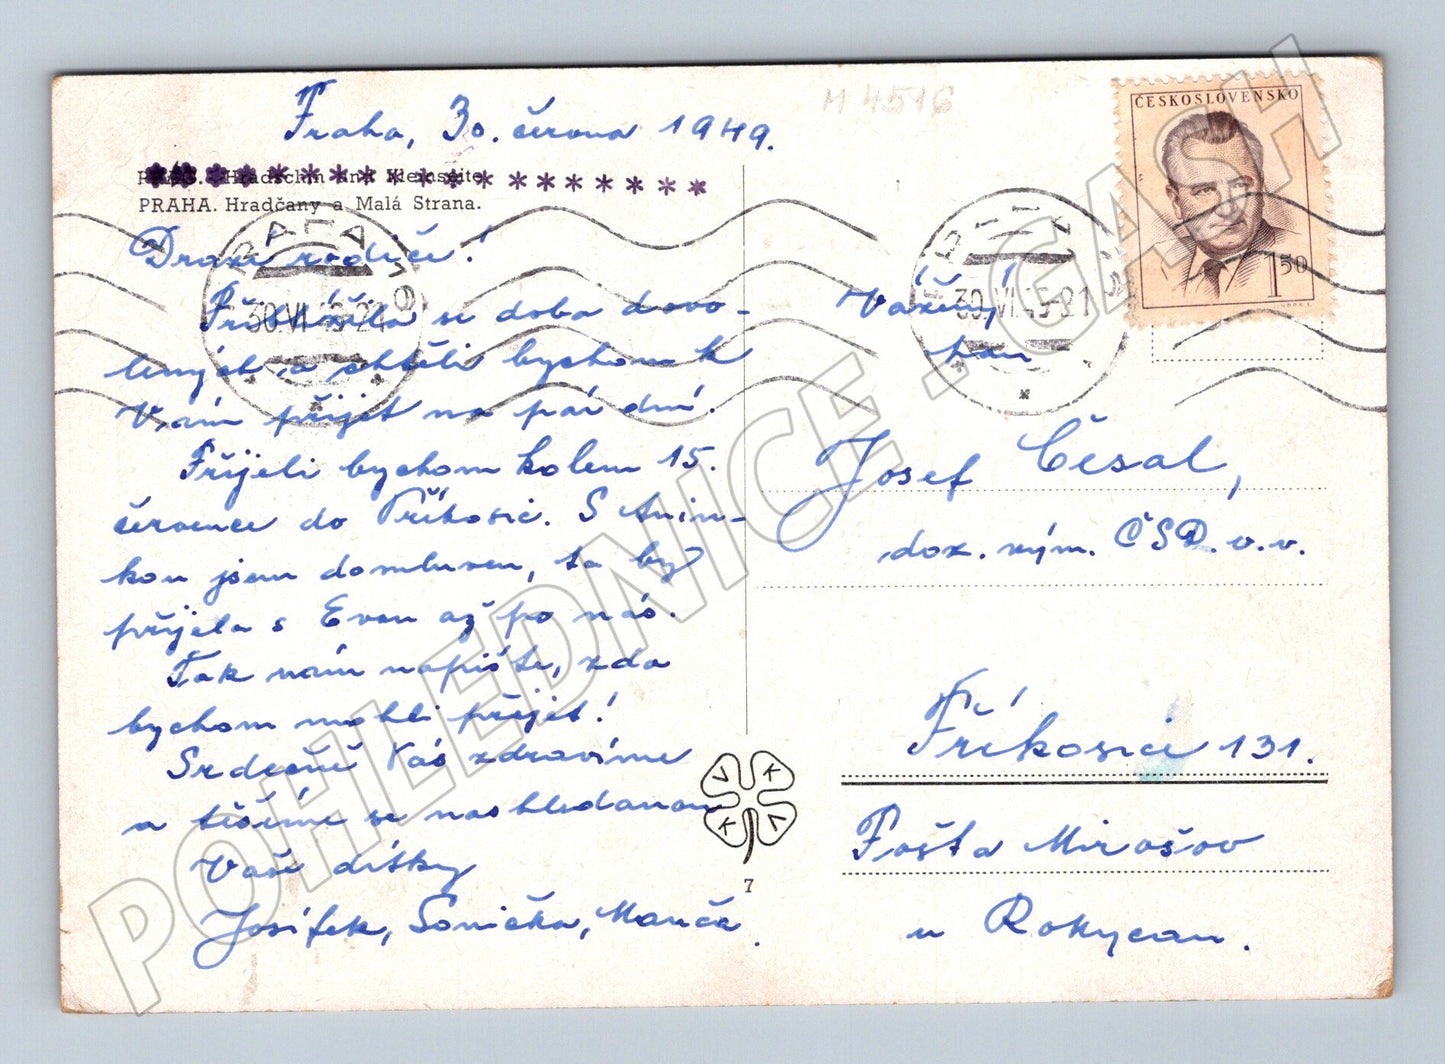 Praha, 30. června 1949.
M 4516
ČESKOSLOVENSKO
1 50
Hradschin und Kleinseite
PRAHA. Hradčany a Malá Strana.
PRAHA
30.VI.49-21
30.VI.49-21
Drazí rodiče!
Přiblížila se doba dovo-
lených a chtěli bychom k
Vám přijet na pár dní.
Přijeli bychom kolem 15.
července do Příkosic. S Anin-
kou jsem domluven, ta by
přijela s Evou až po nás.
Tak nám napište, zda
bychom mohli přijet!
Srdečně Vás zdravíme
a těšíme se na shledanou
Vaše dítky
Josífek, Sonička, Manča.
Vážený
pan
Josef Česal,
doz. vým. ČSD. v. v.
Příkosice 131.
Pošta Mirošov
u Rokycan.
V K
K V
7
POHLEDNICE . GASH